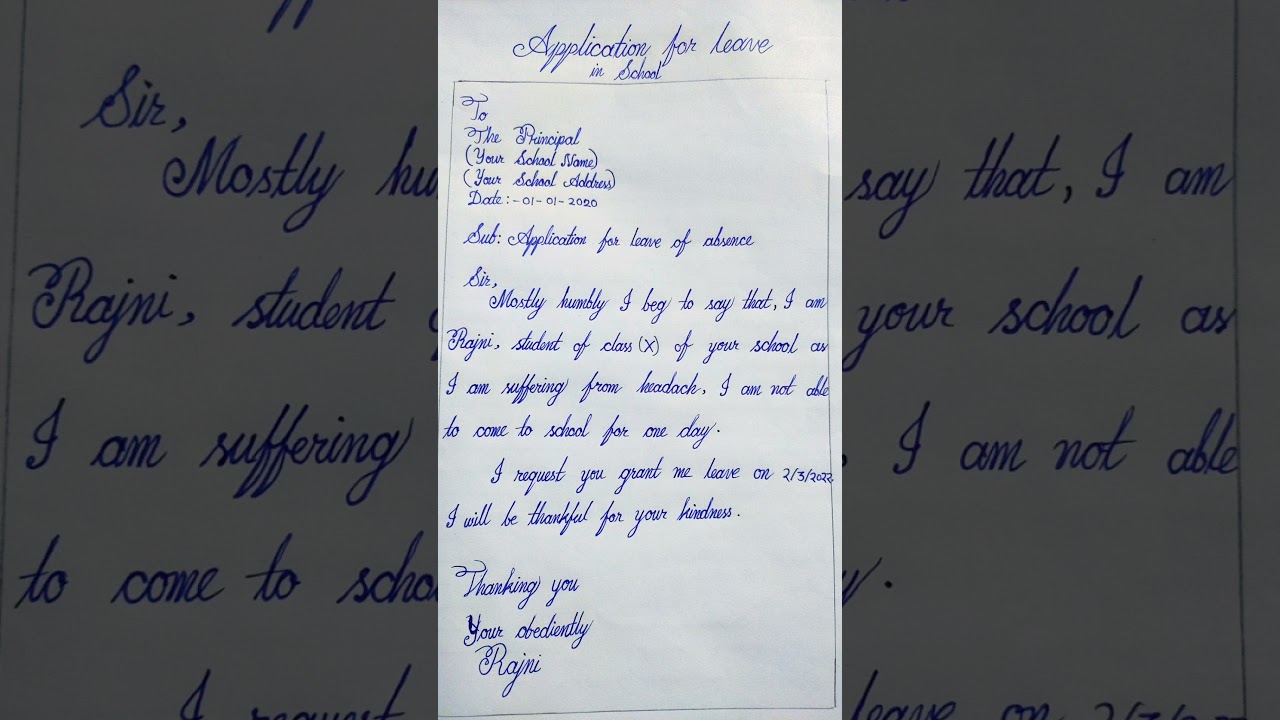 Application for leave
in School
To
The Principal
(Your School Name)
(Your School Address)
Date:-01-01-2020
Sub: Application for leave of absence
Sir,
Mostly humbly I beg to say that, I am
Rajni, student of class (X) of your school as
I am suffering from headach, I am not able
to come to school for one day.
I request you grant me leave on 2/3/2022
I will be thankful for your kindness.
Thanking you
Your obediently
Rajni